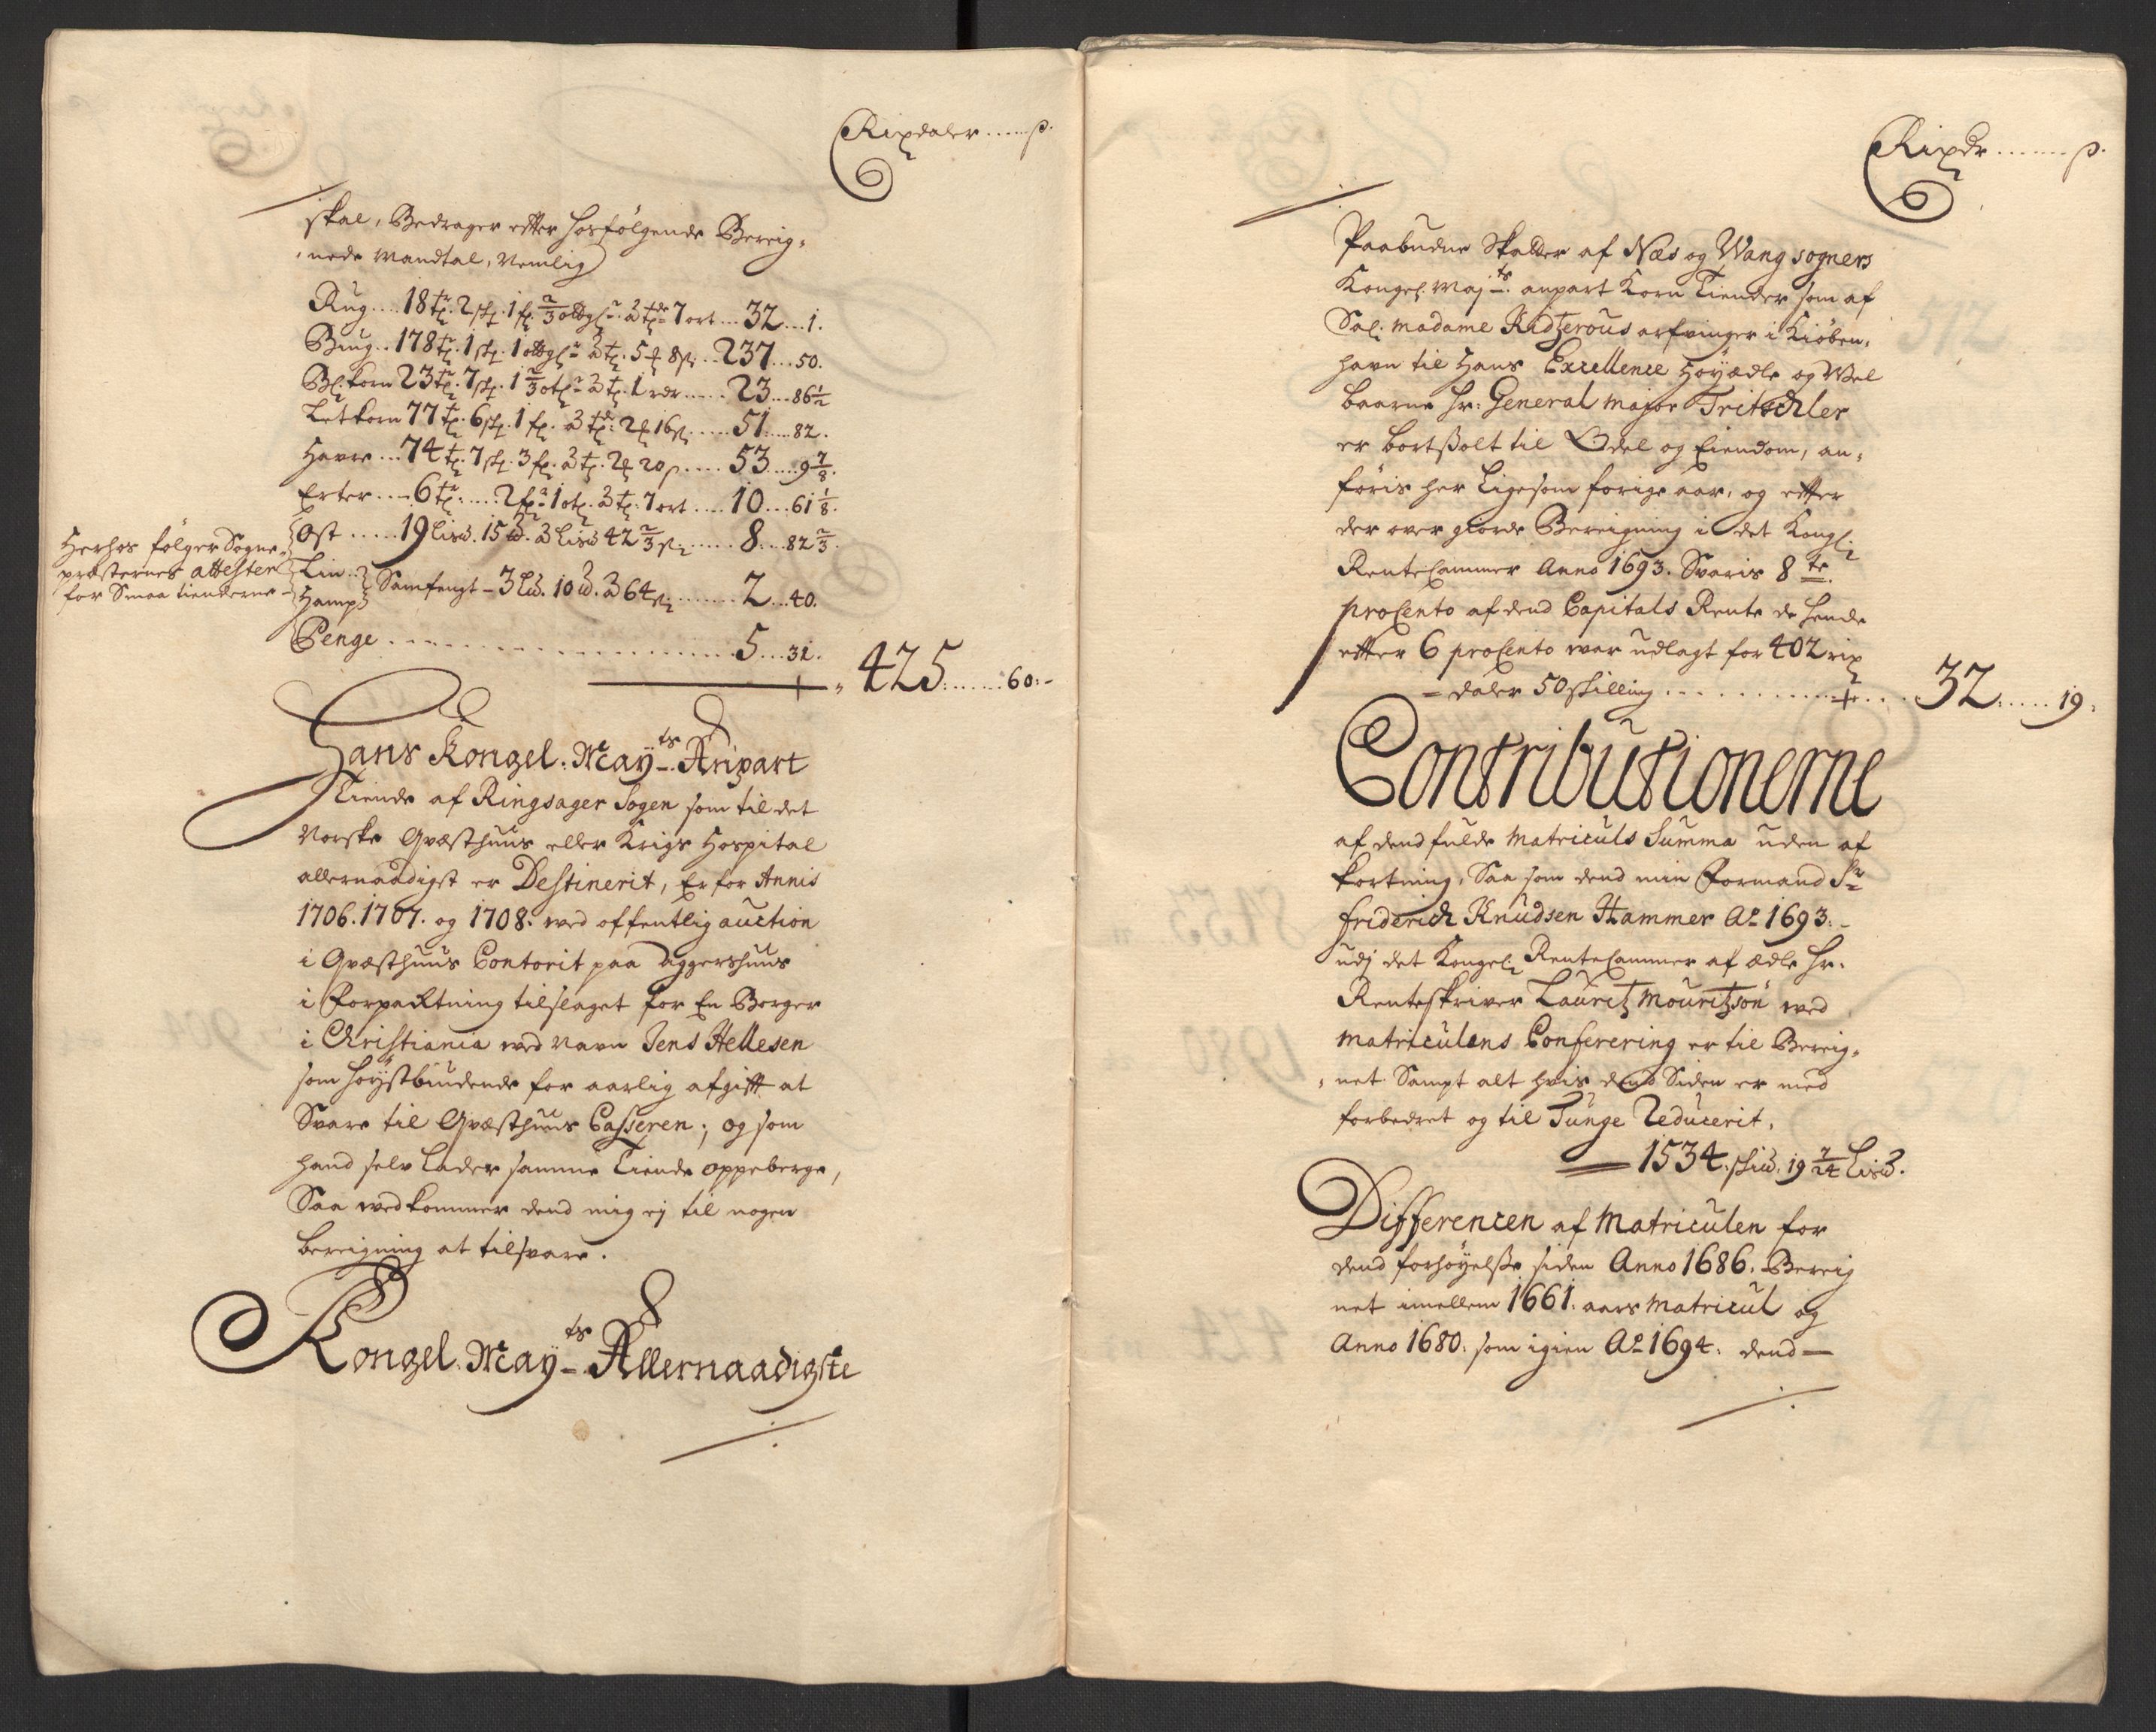 Rixdaler ..... ß.
skal, Bedrager efter hosfølgende Bereig-
nede Mandtal, Nemlig
Rug .... 18 tr. 2 skp. 1 fr. 2/3 ottgr. à td. 7 ort ... 32 ... 1.
Biug .. 178 tr. 1 skp. 1 ottgr. à t. 5 8 ß ... 237 ... 50.
Bl. korn 23 t. 7 skp. 1 2/3 ot. à t. 1 rdr ...... 23 ... 86 1/2
Letkorn 77 t. 6 skp. 1 f. à td. 2 16 ß ...... 51 .... 82.
Havre ... 74 t. 7 skp. 3 f. à t. 2 20 ß ..... 53 .... 9 7/8.
Erter .... 6 t. .... 2 f. 1 ot. à t. 7 ort .... 10 ... 61 1/8.
Ost ..... 19 Lisd. 15 d. à Lisd 42 2/3 ß ...... 8 ... 82 2/3.
Herhos følger Sogne-
præsternes attester
for Smaa tienderne
Lin
Hamp
Samfengt - 3 Ld. 10 d. à 64 ß ........ 2 ... 40.
Penge .................. 5 ... 31.
425 ....... 60:-
Hans Kongel. Mayts Anpart
Tiende af Ringsager Sogen som til det
Norske Qvæsthuus eller Krigs Hospital
allernaadigst er Destinerit, Er for Annis
1706. 1707. og 1708. ved offentlig auction
i Qvæsthuus Contorit paa Aggershuus
i Forpagtning tilslaget for En Borger
i Christiania ved Navn Jens Hellesen
som høystbiudende for aarlig afgift at
Svare til Qvæsthuus Casseren; og som
hand selv lader samme Tiende oppeberge,
Saa vedkommer dend mig ej til nogen
bereigning at tilsvare.
Kongel. Mayts Allernaadigste
Rixdr ....... ß.
Paabudne Skatter af Næs og Wang sogners
Kongel. Majts. anpart Korn Tiender som af
Sal. Madame Ridtzerous arfvinger i Kiøben-
hafn til Hans Excellence Høyædle og Wel
baarne Hr. General Major Tritschler
er bortsolt til Odel og Eiendom, an-
føris her ligesom forige aar, og efter
der over giorde Bereigning i det Kongl.
RenteCammer Anno 1693. Svaris 8te
proCento af dend Capitals Rente de hende
efter 6 proCento var udlagt for 402 rix
daler 50 skilling ............ 32 ..... 19.
Contributionerne
af dend fulde Matriculs Summa uden af
kortning, Saa som dend min Formand Sr
Friderich Knudsen Hammer Ao 1693.
udj det Kongel. RenteCammer af ædle Hr.
Renteskriver Lauritz Mouritzsön ved
Matriculens Conferering er til Bereig-
net Sampt alt hvis dend Siden er med
forbedret og til Tunge Reducerit.
1534. skid. 19 7/24 Lisd.
Differencen af Matriculen for
dend forhøyelse siden Anno 1686. Bereig
net imellem 1661. aars Matricul og
Anno 1680. som igien Ao 1694. dend